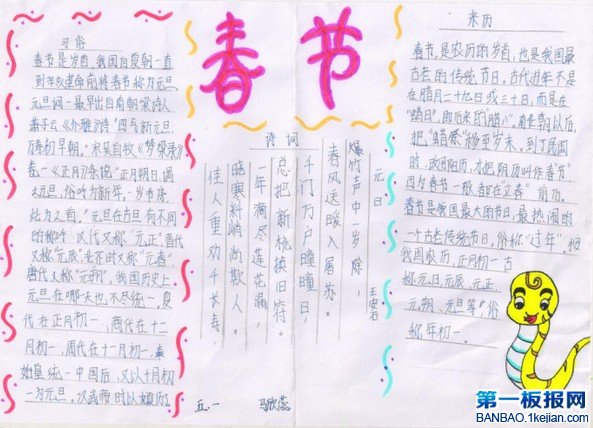 春节
习俗
春节是岁首，我国自夏朝一直
到辛亥革命前将春节称为元旦，
元旦一词一最早出自南朝梁诗人
萧子云《介雅》诗"四气新元旦，
万寿初早朝。"宋吴自牧《梦梁录》
卷一《正月》条说"正月朔日，谓
之元旦，俗呼为新年。一岁节序，
此为之首。"元旦在古旦有不同
的称呼，汉代又称"元正"晋代
又称"元辰"北齐时又称"元春"
唐代又称"元朔"，我国历史上，
元旦在哪一天也不尽统一，夏
代在正月初一，商代在十二
月初一，周代在十一月初一，秦
始皇统一中国后，又以十月初
一为元旦。汉武帝时以
诗词
元日
王安石
爆竹声中一岁除，
春风送暖入屠苏。
千门万户曈曈日，
总把新桃换旧符。
一年滴尽莲花漏，
晓寒料峭尚欺人。
佳人重劝千长寿，
来历
春节，是农历的岁首，也是我国最
古老的传统节日，古代过年不是
在腊月二十九日或三十日，而是在
"蜡日"，即后来的"腊八"。南北朝以后，
把"蜡祭"移至岁末，到了民国
时，改用阳历，才把阴历叫作春节，
因为春节一般都在立春"前后。
春节是我国最大的节日，最热闹的
一个古老传统节日，俗称"过年"。按
我国农历，正月初一古
称元日、元辰、元正、
元朔、元旦等"俗
称年初一。
五.一
马欣蕊
第一板报网
BANBAO.1kejian.com